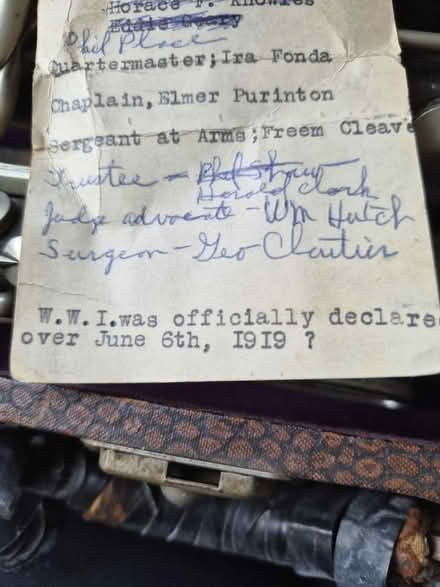 Horace F. Knowles
Eddie Geary
Phil Place
Quartermaster;Ira Fonda
Chaplain,Elmer Purinton
Sergeant at Arms;Freem Cleave
Trustee - Phil Shaw
Harold Clark
Judge advocate - Wm Hutch
Surgeon - Geo Cloutier
W.W.I.was officially declare
over June 6th, 1919 ?